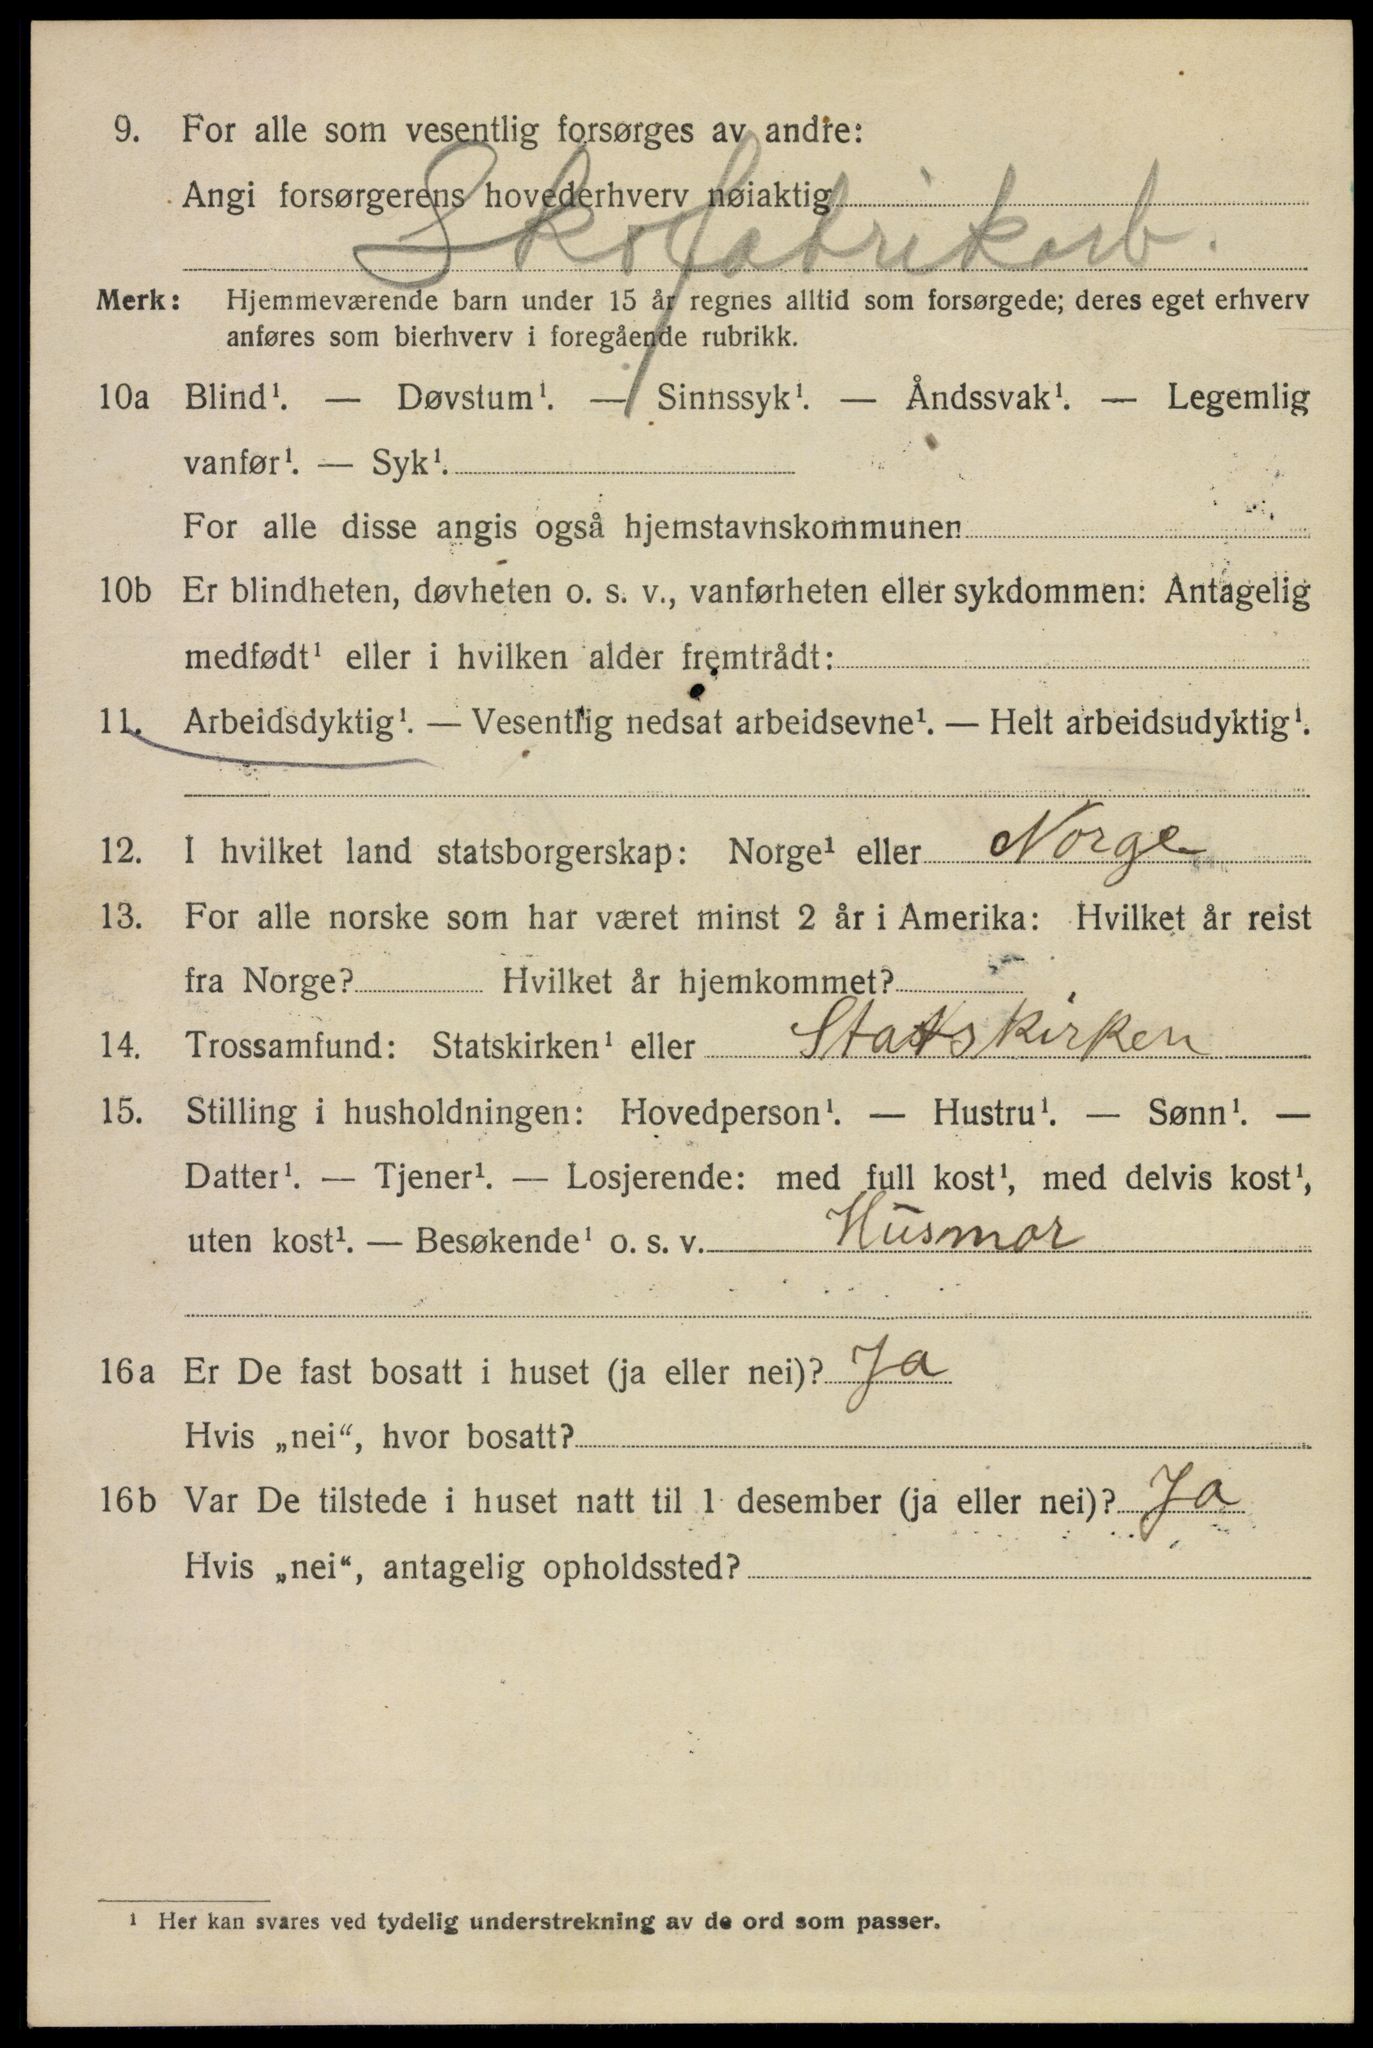 9. For alle som vesentlig forsørges av andre:
Angi forsørgerens hovederhverv nøiaktig
Skofabrikarb.
Merk: Hjemmeværende barn under 15 år regnes alltid som forsørgede; deres eget erhverv
anføres som bierhverv i foregående rubrikk.
10a Blind¹. — Døvstum¹. — Sinnssyk¹. — Åndssvak¹. — Legemlig
vanfør¹. — Syk¹.
For alle disse angis også hjemstavnskommunen
10b Er blindheten, døvheten o. s. v., vanførheten eller sykdommen: Antagelig
medfødt¹ eller i hvilken alder fremtrådt:
11. Arbeidsdyktig¹. — Vesentlig nedsat arbeidsevne¹. — Helt arbeidsudyktig¹.
12. I hvilket land statsborgerskap: Norge¹ eller Norge
13. For alle norske som har været minst 2 år i Amerika: Hvilket år reist
fra Norge? Hvilket år hjemkommet?
14. Trossamfund: Statskirken¹ eller Statskirken
15. Stilling i husholdningen: Hovedperson¹. — Hustru¹. — Sønn¹. —
Datter¹. — Tjener¹. — Losjerende: med full kost¹, med delvis kost¹,
uten kost¹. — Besøkende¹ o. s. v. Husmor
16a Er De fast bosatt i huset (ja eller nei)? Ja
Hvis „nei“, hvor bosatt?
16b Var De tilstede i huset natt til 1 desember (ja eller nei)? Ja
Hvis „nei“, antagelig opholdssted?
¹ Her kan svares ved tydelig understrekning av de ord som passer.